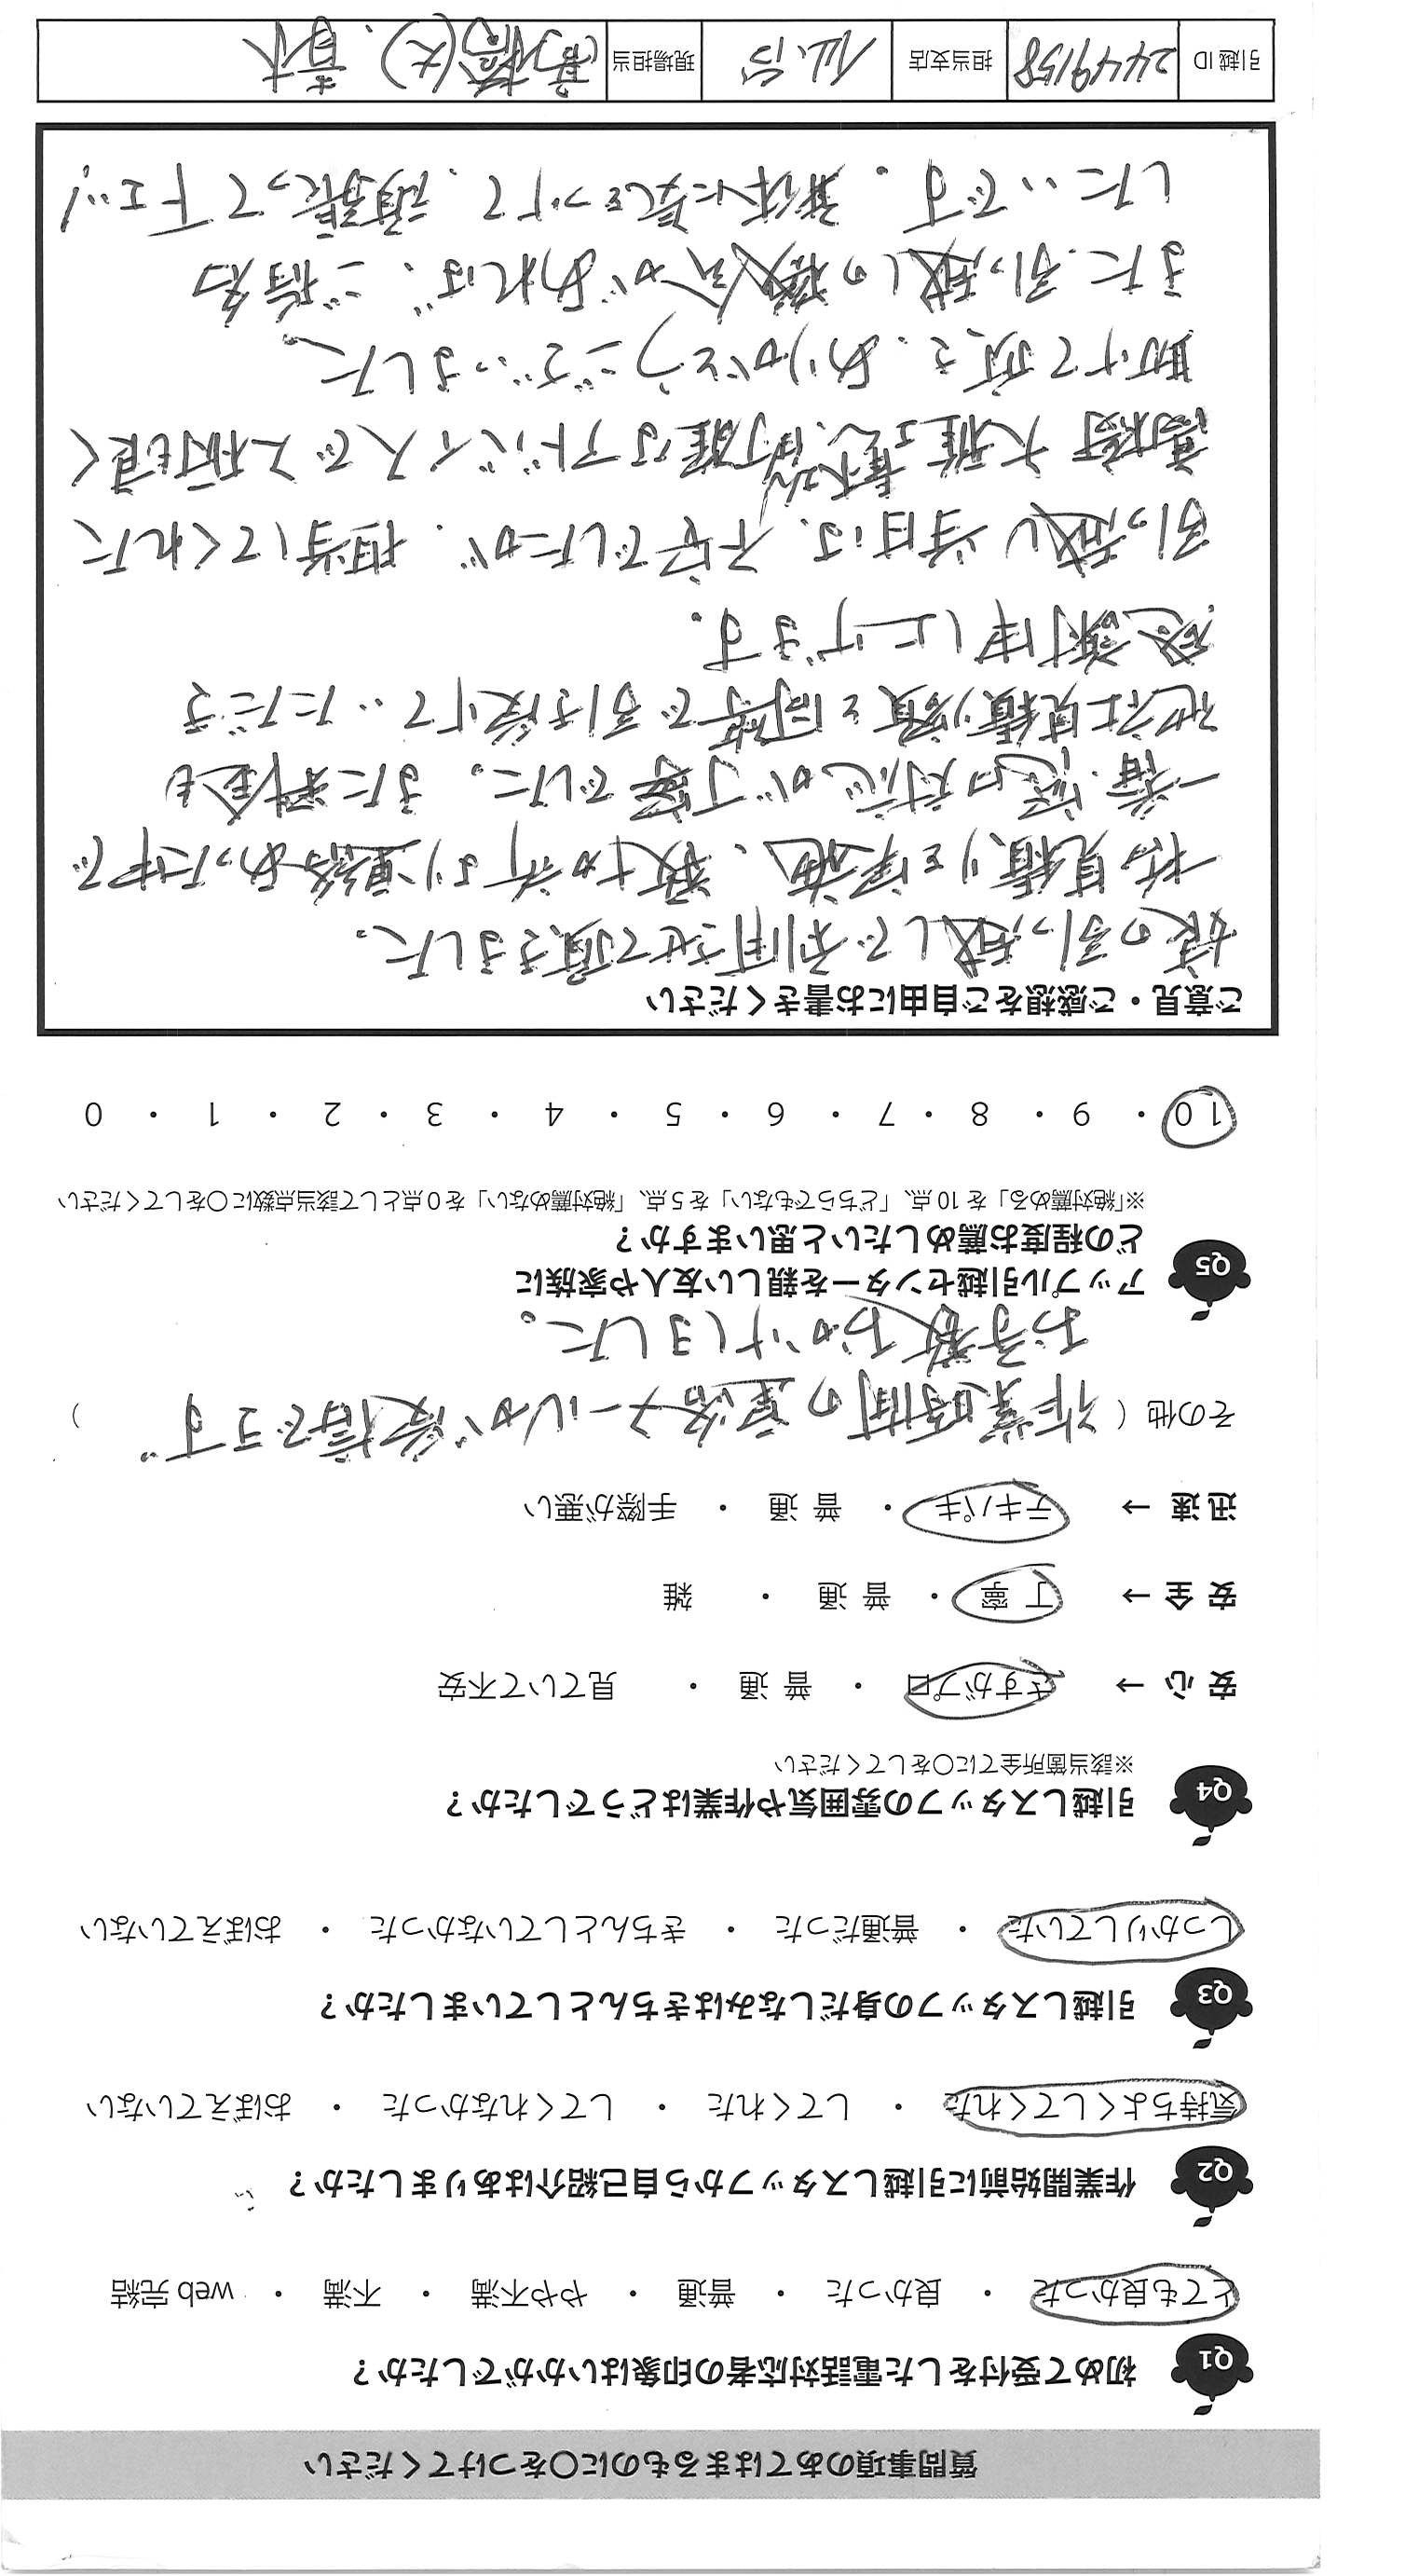 質問事項のあてはまるものに〇をつけてください
Q1 初めて受付をした電話対応者の印象はいかがでしたか？
とても良かった ・ 良かった ・ 普通 ・ やや不満 ・ 不満 ・ web 完結
Q2 作業開始前に引越しスタッフから自己紹介はありましたか？
気持ちよくしてくれた ・ してくれた ・ してくれなかった ・ おぼえていない
Q3 引越しスタッフの身だしなみはきちんとしていましたか？
しっかりしていた ・ 普通だった ・ きちんとしていなかった ・ おぼえていない
Q4 引越しスタッフの雰囲気や作業はどうでしたか？
※該当箇所全てに〇をしてください
安 心 → さすがプロ ・ 普 通 ・ 見ていて不安
安 全 → 丁 寧 ・ 普 通 ・ 雑
迅 速 → テキパキ ・ 普 通 ・ 手際が悪い
その他 ( 作業時間の連絡メールが受信できず )
お手数おかけしました。
Q5 アップル引越センターを親しい友人や家族に
どの程度お薦めしたいと思いますか？
※「絶対薦める」を 10 点、「どちらでもない」を 5 点、「絶対薦めない」を 0 点として該当点数に〇をしてください
10 ・ 9 ・ 8 ・ 7 ・ 6 ・ 5 ・ 4 ・ 3 ・ 2 ・ 1 ・ 0
ご意見・ご感想をご自由にお書きください
娘の引っ越しで利用させて頂きました。
見積りを実施、数か所より連絡あった中で
一番、対応が丁寧でした。また料金も
他社見積り額と同等で引き受けていただき
感謝申し上げます。
引っ越し当日は、不安でしたが、担当してくれた
高橋 大雅さん、青木さん 的確なアドバイスで 手際も良く
助けて頂き、ありがとうございました。
また、引っ越しの機会があれば、ご指名
したいです。身体に気をつけて、頑張って下さい!
引越 ID 2449158 担当支店 仙台 現場担当 高橋(大)、青木